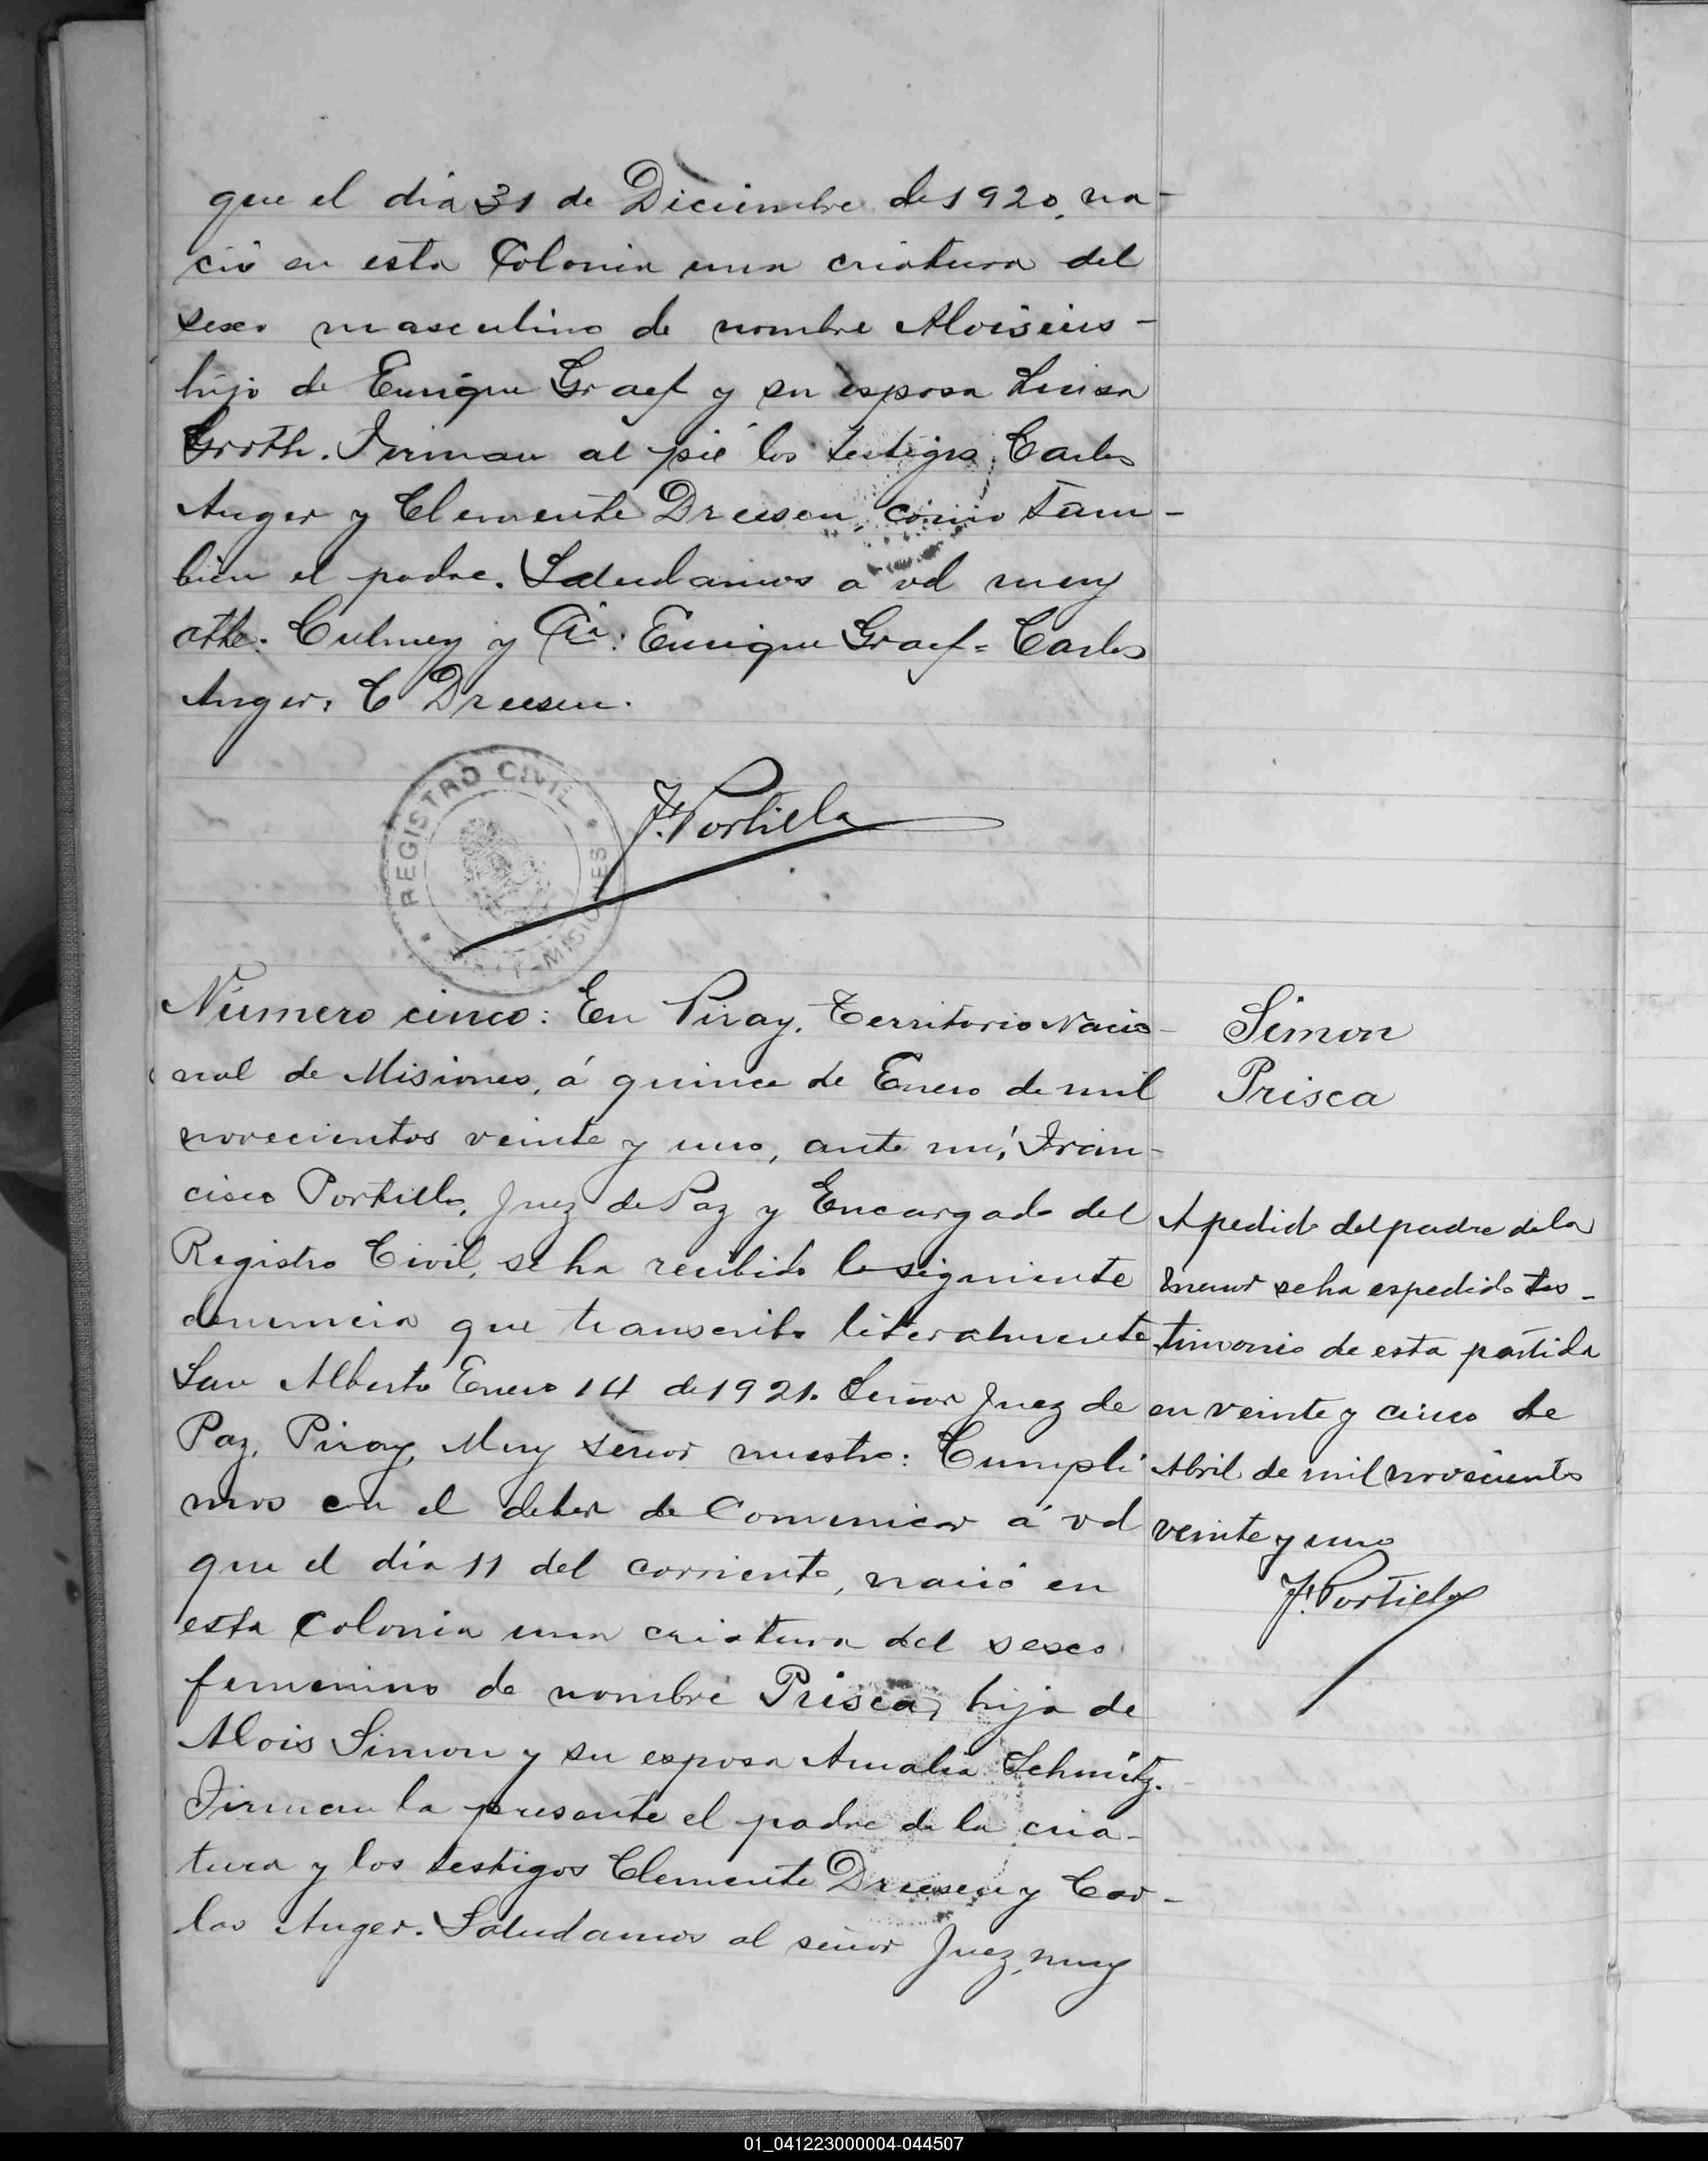 que el dia 31 de Diciembre de 1920, na-
ció en esta Colonia una criatura del
sexo masculino de nombre Aloisius -
hijo de Enrique Graef y su esposa Luisa
Groth. Firman al pié los testigos, Carlos
Anger y Clemente Dreesen, como tam-
bien el padre. Saludamos a vd muy
atte. Culmey y Cia: Enrique Graef = Carlos
Anger. C Dreesen.
REGISTRO CIVIL
MISIONES
F. Portillo
Número cinco: En Piray, Territorio Nacio-
nal de Misiones, á quince de Enero de mil
novecientos veinte y uno, ante mí, Fran-
cisco Portillo, Juez de Paz y Encargado del
Registro Civil, se ha recibido la siguiente
denuncia que transcribo literalmente
San Alberto Enero 14 de 1921. Señor Juez de
Paz, Piray, Muy senor nuestro: Cumpli
mos en el deber de Comunicar á vd
que el día 11 del corriente, nació en
esta Colonia una criatura del sexo
femenino de nombre Prisca, hija de
Alois Simon y su esposa Amalia Schmitz.
Firman la presente el padre de la cria-
tura y los testigos Clemente Dreesen y Car-
los Anger. Saludamos al señor Juez, muy
Simon
Prisca
A pedido del padre de la
menor se ha espedido tes-
timonio de esta partida
en veinte y cinco de
Abril de mil novecientos
veinte y uno
F. Portillo
01_041223000004-044507